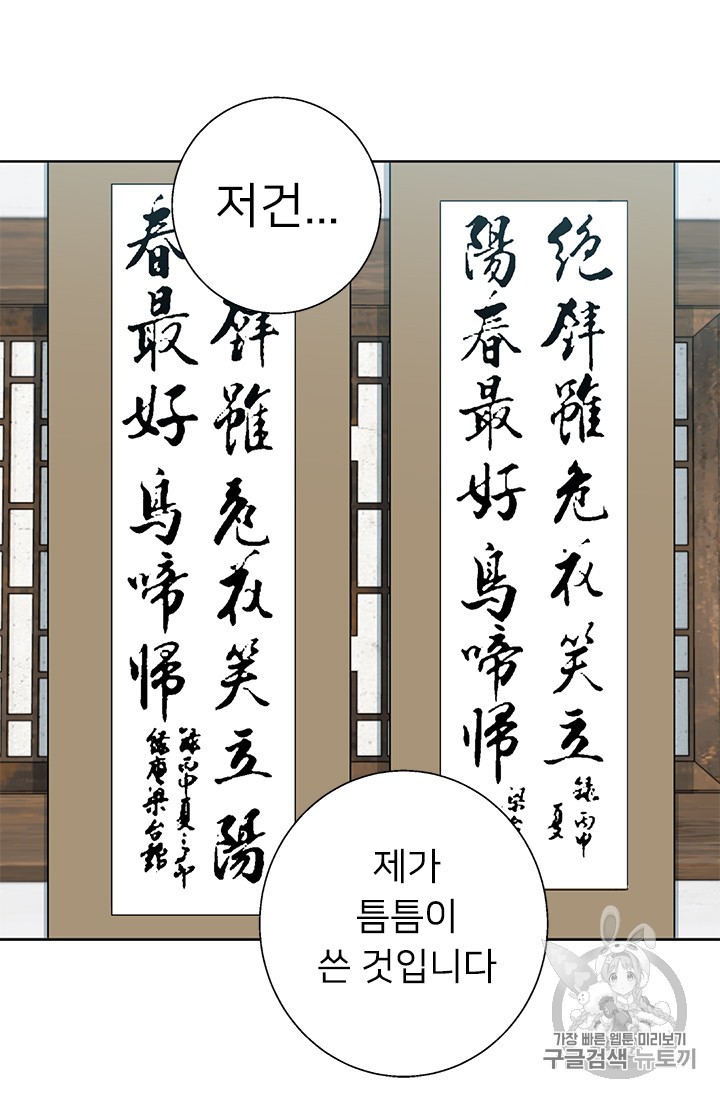 저건...
絶
壁雖危花笑立陽
春最好鳥啼帰
絶壁雖危花笑立
陽春最好鳥啼帰
錄丙申夏
제가
틈틈이
쓴 것입니다
가장 빠른 웹툰 미리보기
구글검색 뉴토끼